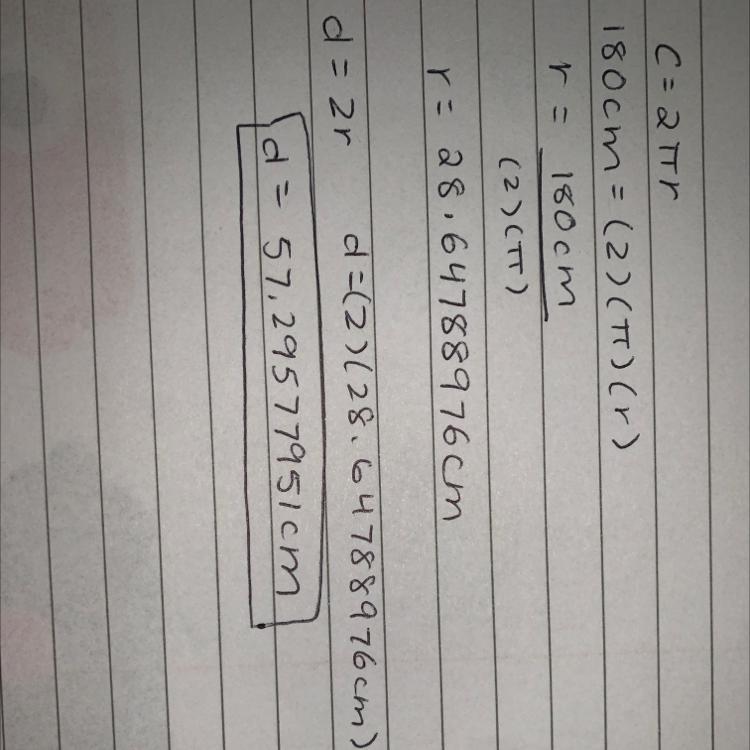 C = 2πr
180cm = (2)(π)(r)
r = 180cm
(2)(π)
r = 28.64788976cm
d = 2r d=(2)(28.64788976cm)
d = 57.29577951cm